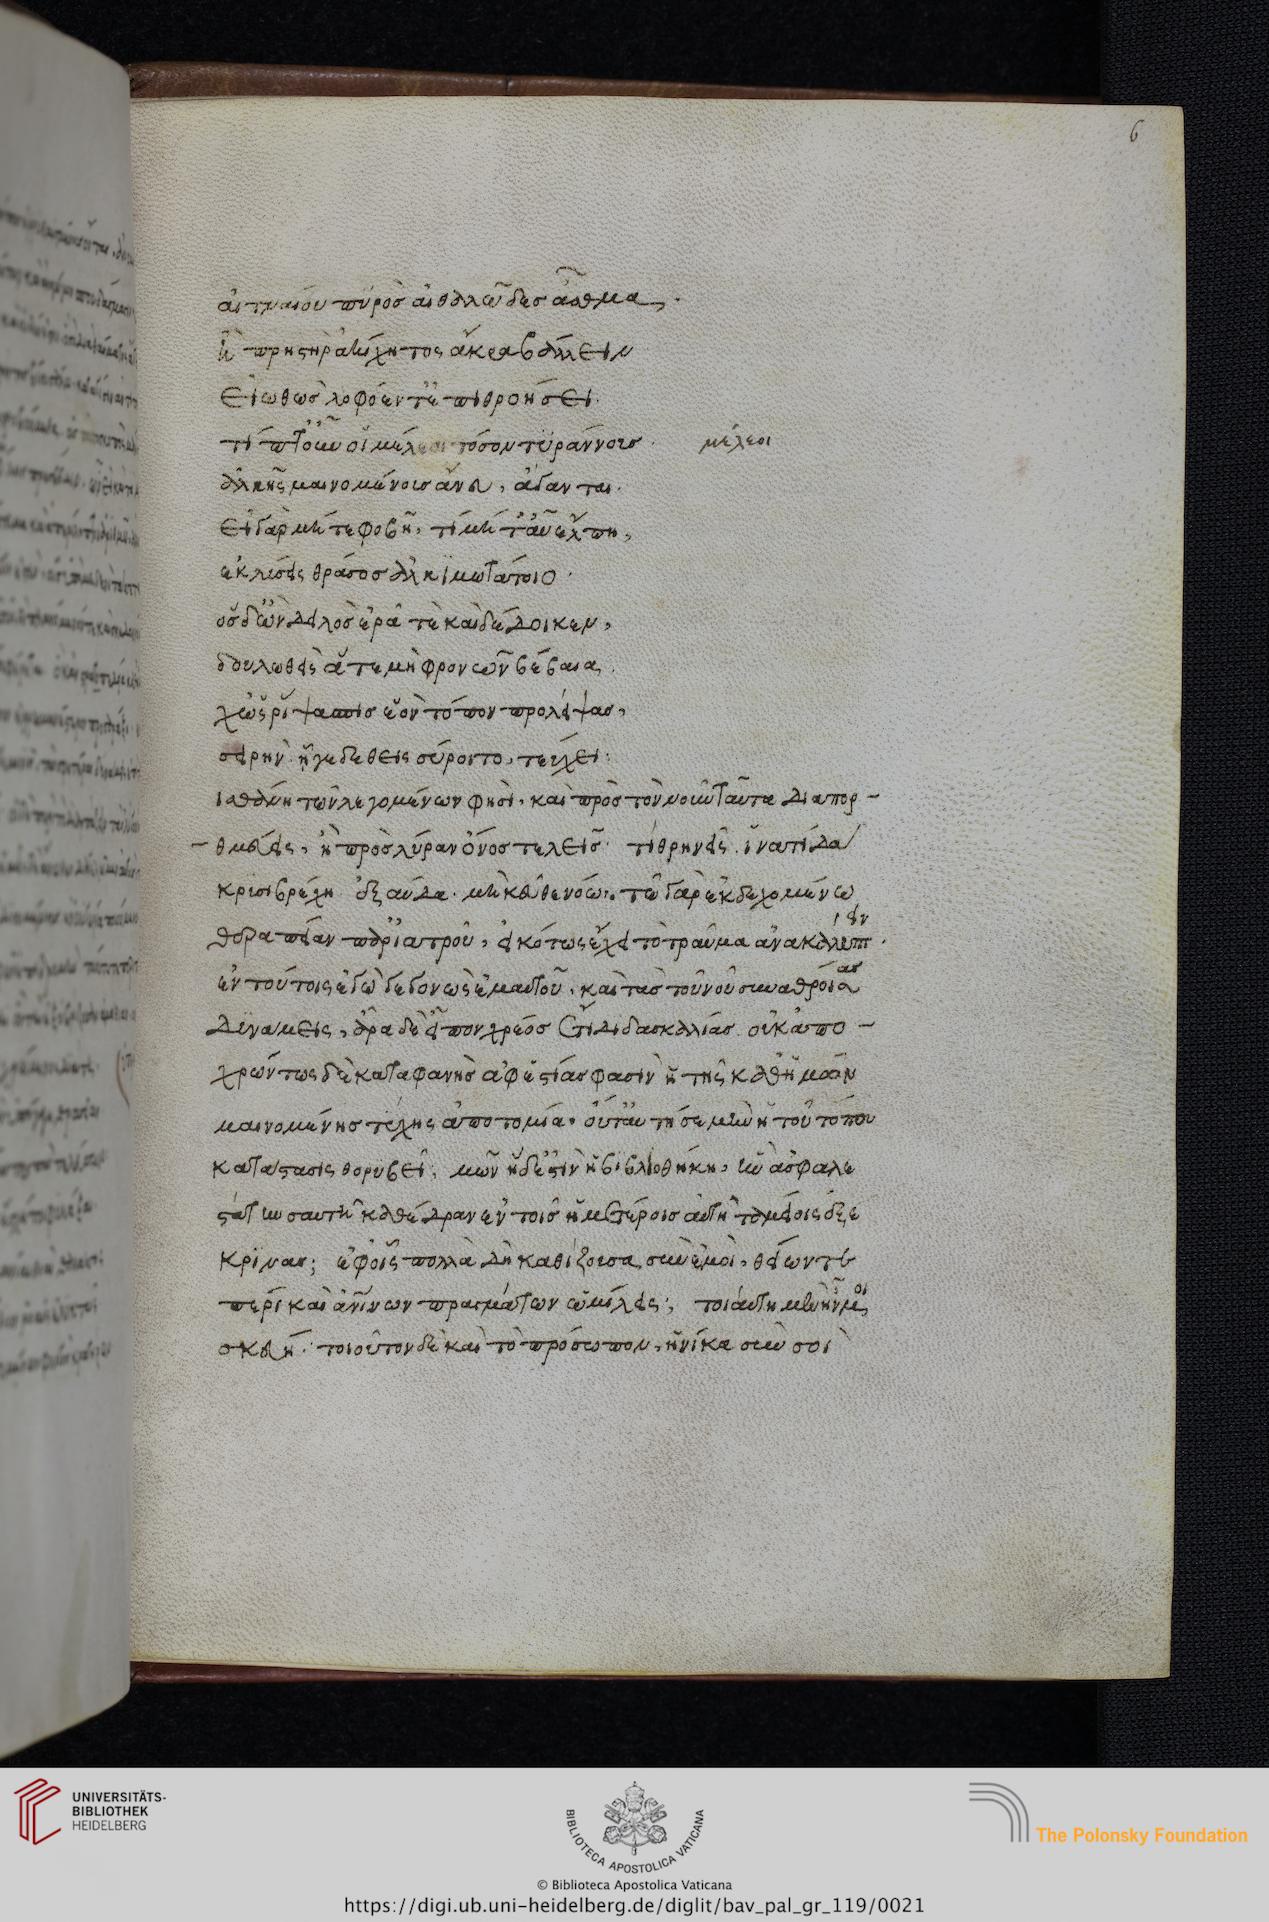 6
αἰτναίου πυρὸς αἰθαλῶδες ἆσθμα,
ἢ πρηστὴρ ἀτύχητος ἄκρα βάλλειν
εἰωθὼς λοφόεντ᾽ ἐπιθροήσει.
τί πτοιῶν οἱ μέλεοι τόσον τυράννοις
μέλεοι
ἄλκης μαινομένοις ἄνευ, ἄγανται.
εἰ γὰρ μήτε φοβῇ, τί μήτ᾽ ἂν ἔλπη,
ἐκλύσεις θράσος ἀλκιμωτάτοιο.
ὃς δ᾽ ὢν δειλὸς ἐρᾷ τε καὶ δέδοικεν,
δουλωθεὶς ἅτε μὴ φρονῶν βέβαια.
χὡς ῥίψασπις ἑὸν τόπον προλείψας,
σειρὴν ᾗγε δεθεὶς σύροιτο, τεύχει.
αἰσθάνῃ τῶν λεγομένων φησὶ, καὶ πρὸς τὸν νοῦν ταῦτα διαπορ-
θμεύεις, ἢ πρὸς λύραν ὄνος τελεῖς. τί θρηνεῖς. ἵνα τί δα
κρυσι βρέχῃ ἐξαύδα. μὴ κεῦθε νόῳ. τῷ γὰρ ἐκδεχομένῳ
θεραπείαν παρ᾽ ἰατροῦ, εἰκότως εἶχε τὸ τραῦμα ἀνακαλύπτειν.
ἐν τούτοις ἐγὼ γεγονὼς ἐμαυτοῦ, καὶ τὰς τοῦ νοῦ συναθροίσας
δυνάμεις, ἆρα δὲ εἶπον χρέος ἔτι διδασκαλίας. οὐκ ἀπο-
χρώντως δὲ καταφανὴς ἀφ᾽ ἑστίας φασὶν ἡ τῆς καθ᾽ ἡμῶν
μαινομένης τύχης ἀποτομία. οὔτ᾽ αὐτή σε μὴν ἡ τοῦ τόπου
κατάστασις θορυβεῖ. μῶν ἥδ᾽ ἐστὶν ἡ βιβλιοθήκη, ἣν ἀσφαλε
στάτην σαυτῇ καθέδραν ἐν τοῖς ἡμετέροις αὐτὴ ταμείοις ἐξέ
κρινας; ἐφ᾽ οἷς πολλὰ δὴ καθίζουσα σὺν ἐμοὶ, θείων τε
περὶ καὶ ἀνθρωπίνων πραγμάτων ὡμίλεις; τοιαύτη μὲν ἦν μοι
σκευή. τοιοῦτον δὲ καὶ τὸ πρόσωπον, ἡνίκα σὺν σοὶ
UNIVERSITÄTS-
BIBLIOTHEK
HEIDELBERG
BIBLIOTECA APOSTOLICA VATICANA
The Polonsky Foundation
© Biblioteca Apostolica Vaticana
https://digi.ub.uni-heidelberg.de/diglit/bav_pal_gr_119/0021